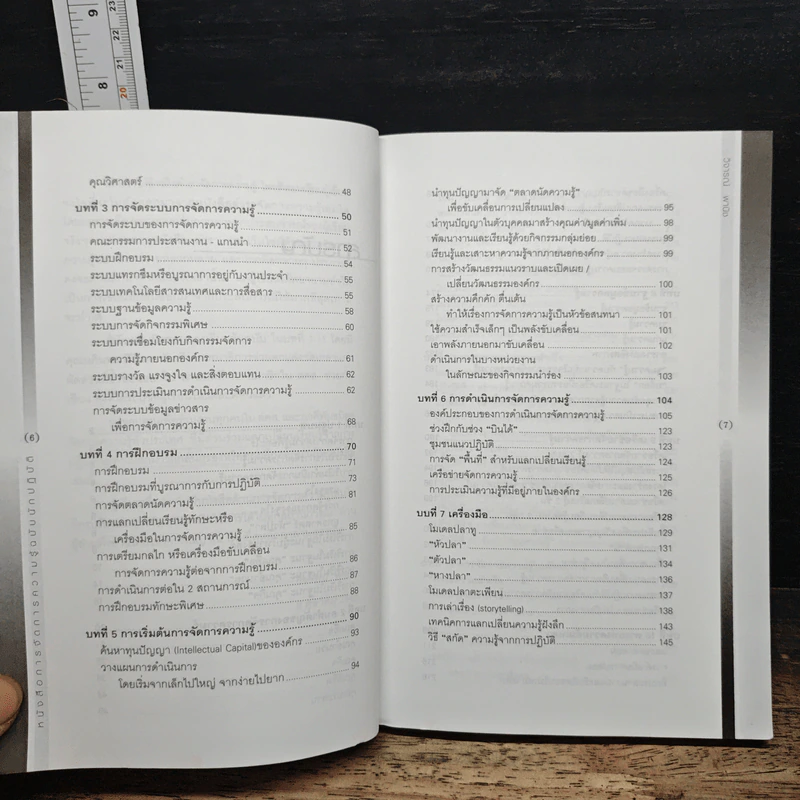 9
8
23
22
21
20
คุณวิศาสตร์ 48
บทที่ 3 การจัดระบบการจัดการความรู้ 50
การจัดระบบของการจัดการความรู้ 51
คณะกรรมการประสานงาน - แกนนำ 52
ระบบฝึกอบรม 54
ระบบแทรกซึมหรือบูรณาการอยู่กับงานประจำ 55
ระบบเทคโนโลยีสารสนเทศและการสื่อสาร 55
ระบบฐานข้อมูลความรู้ 58
ระบบการจัดกิจกรรมพิเศษ 60
ระบบการเชื่อมโยงกับกิจกรรมจัดการ
ความรู้ภายนอกองค์กร 61
ระบบรางวัล แรงจูงใจ และสิ่งตอบแทน 62
ระบบการประเมินการดำเนินการจัดการความรู้ 62
การจัดระบบข้อมูลข่าวสาร
เพื่อการจัดการความรู้ 68
บทที่ 4 การฝึกอบรม 70
การฝึกอบรม 71
การฝึกอบรมที่บูรณาการกับการปฏิบัติ 73
การจัดตลาดนัดความรู้ 81
การแลกเปลี่ยนเรียนรู้ทักษะหรือ
เครื่องมือในการจัดการความรู้ 85
การเตรียมกลไก หรือเครื่องมือขับเคลื่อน
การจัดการความรู้ต่อจากการฝึกอบรม 86
การดำเนินการต่อใน 2 สถานการณ์ 87
การฝึกอบรมทักษะพิเศษ 88
บทที่ 5 การเริ่มต้นการจัดการความรู้ 90
ค้นหาทุนปัญญา (Intellectual Capital)ขององค์กร 93
วางแผนการดำเนินการ
โดยเริ่มจากเล็กไปใหญ่ จากง่ายไปยาก 94
(6)
นำทุนปัญญามาจัด "ตลาดนัดความรู้"
เพื่อขับเคลื่อนการเปลี่ยนแปลง 95
นำทุนปัญญาในตัวบุคคลมาสร้างคุณค่า/มูลค่าเพิ่ม 98
พัฒนางานและเรียนรู้ด้วยกิจกรรมกลุ่มย่อย 99
เรียนรู้และเสาะหาความรู้จากภายนอกองค์กร 99
การสร้างวัฒนธรรมแนวราบและเปิดเผย /
เปลี่ยนวัฒนธรรมองค์กร 100
สร้างความคึกคัก ตื่นเต้น
ทำให้เรื่องการจัดการความรู้เป็นหัวข้อสนทนา 101
ใช้ความสำเร็จเล็กๆ เป็นพลังขับเคลื่อน 101
เอาพลังภายนอกมาขับเคลื่อน 102
ดำเนินการในบางหน่วยงาน
ในลักษณะของกิจกรรมนำร่อง 103
บทที่ 6 การดำเนินการจัดการความรู้ 104
องค์ประกอบของการดำเนินการจัดการความรู้ 105
ช่วงฝึกกับช่วง "บินได้" 123
ชุมชนแนวปฏิบัติ 123
การจัด "พื้นที่" สำหรับแลกเปลี่ยนเรียนรู้ 124
เครือข่ายจัดการความรู้ 125
การประเมินความรู้ที่มีอยู่ภายในองค์กร 126
บบที่ 7 เครื่องมือ 128
โมเดลปลาทู 129
"หัวปลา" 131
"ตัวปลา" 134
"หางปลา" 136
โมเดลปลาตะเพียน 137
การเล่าเรื่อง (storytelling) 138
เทคนิคการแลกเปลี่ยนความรู้ฝังลึก 143
วิธี "สกัด" ความรู้จากการปฏิบัติ 145
(7)
วิจารณ์ พานิช